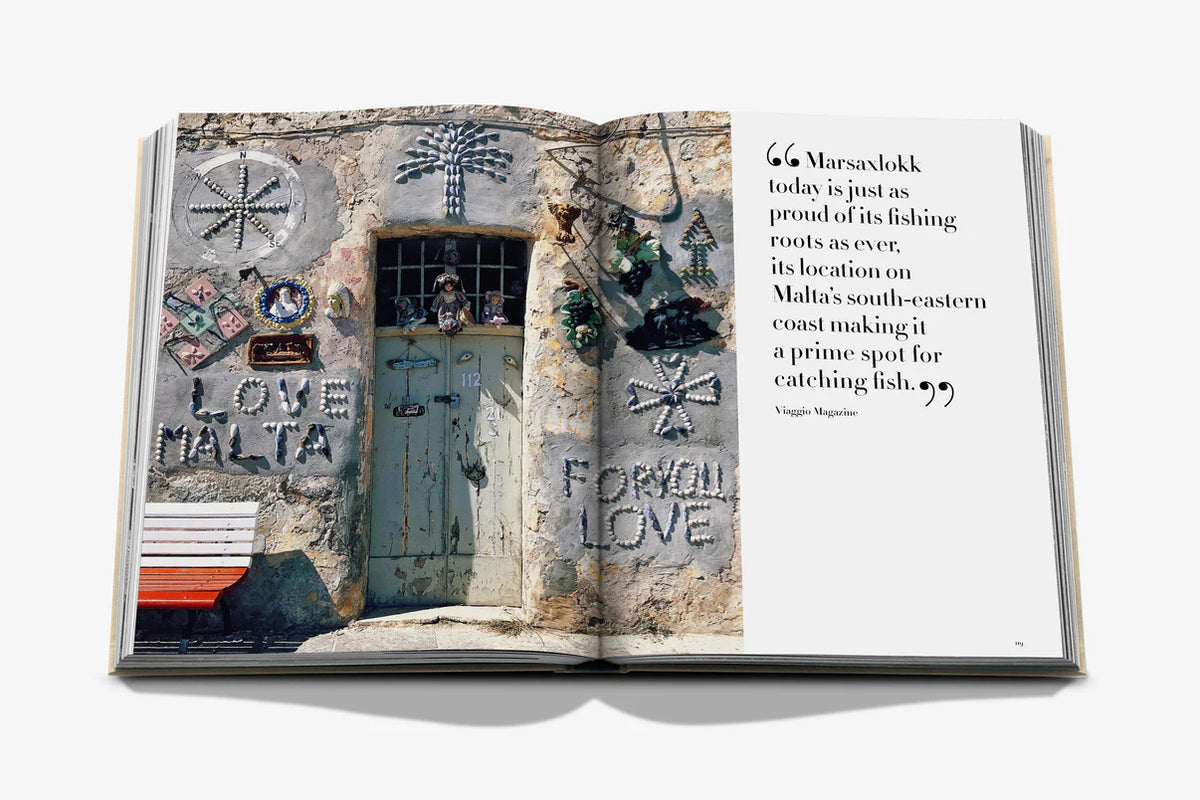 N
SE
LOVE
MALTA
112
FOR YOU
LOVE
“Marsaxlokk
today is just as
proud of its fishing
roots as ever,
its location on
Malta’s south-eastern
coast making it
a prime spot for
catching fish.”
Viaggio Magazine
119